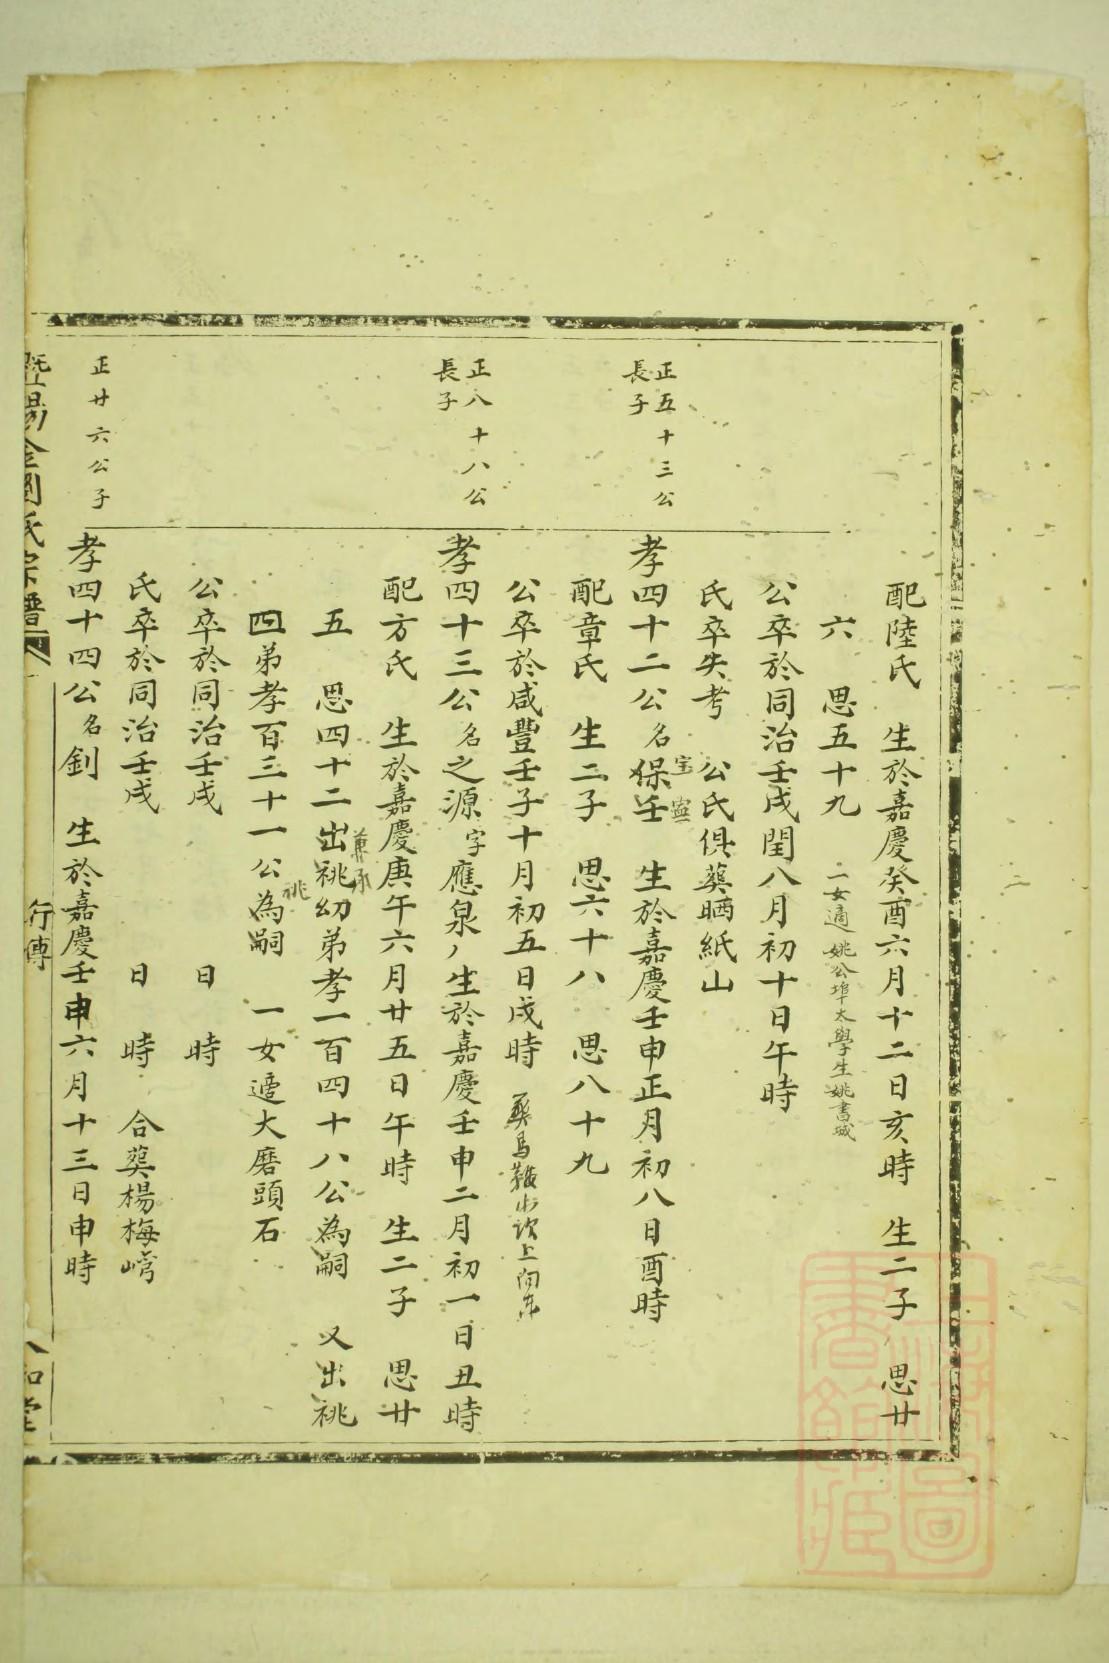 配陸氏 生於嘉慶癸酉六月十二日亥時 生二子 思廿
六 思五十九 一女適姚公埠太學生姚書城
公卒於同治壬戌閏八月初十日午時
氏卒失考 公氏俱葬晒紙山
正五十三公
長子
孝四十二公名保壬 生於嘉慶壬申正月初八日酉時
宝 寍
配章氏 生二子 思六十八 思八十九
公卒於咸豐壬子十月初五日戌時 葬馬鞍山 上向
正八十八公
長子
孝四十三公名之源字應泉 生於嘉慶壬申二月初一日丑時
配方氏 生於嘉慶庚午六月廿五日午時 生二子 思廿
五 思四十二出祧幼弟孝一百四十八公為嗣 又出祧
兼承
四弟孝百三十一公為嗣 一女適大磨頭石
祧
公卒於同治壬戌 日 時
氏卒於同治壬戌 日 時 合葬楊梅嶹
正廿六公子
孝四十四公名釗 生於嘉慶壬申六月十三日申時
暨陽 劉氏宗譜
行傳